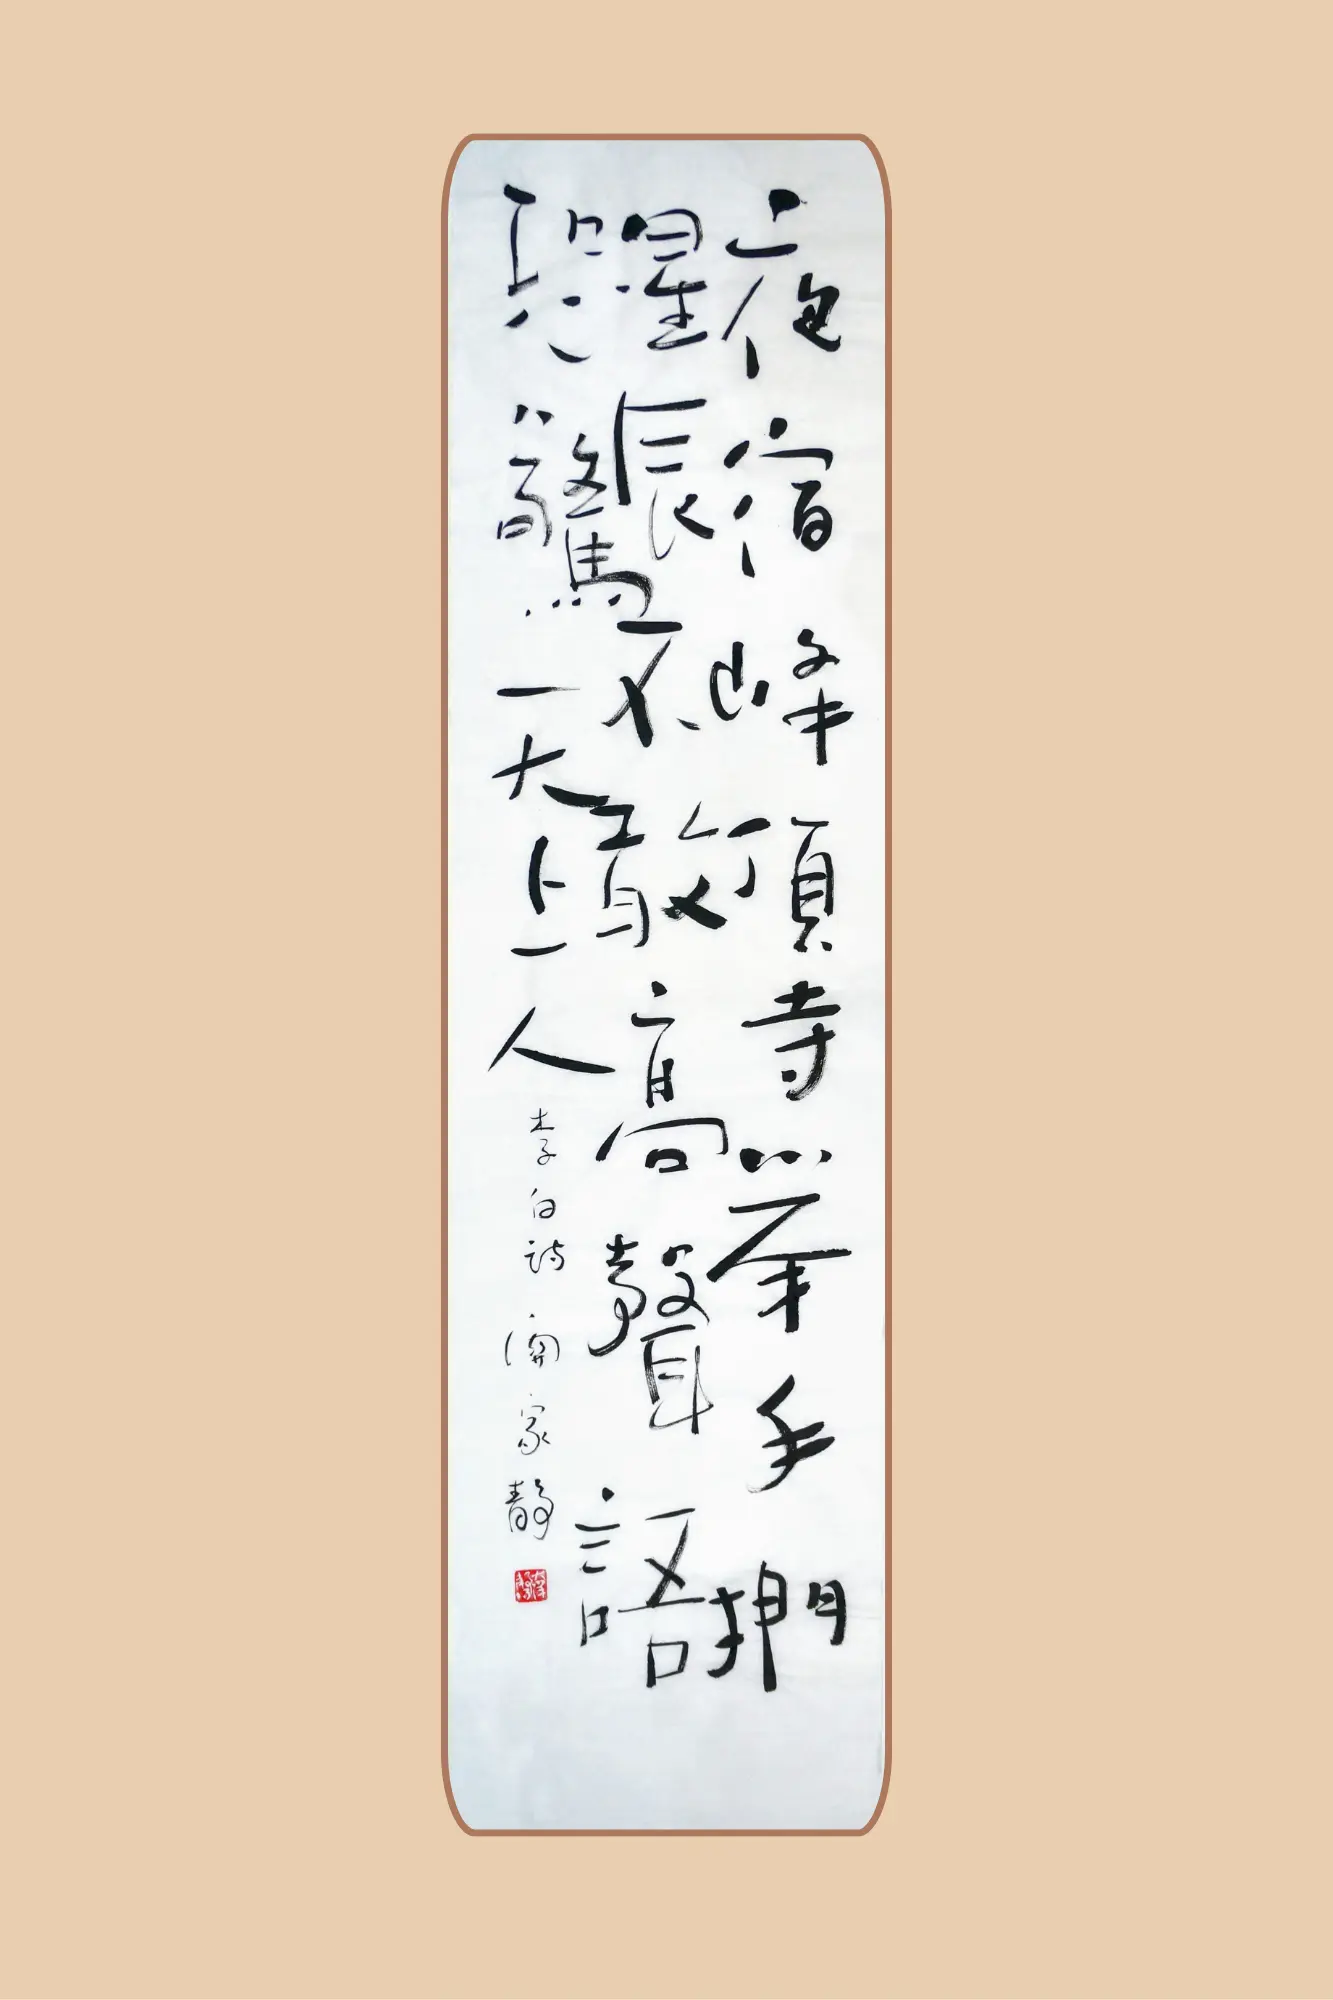 夜宿峰頂寺举手捫
星辰不敢高聲語
恐驚天上人
李白詩 家静